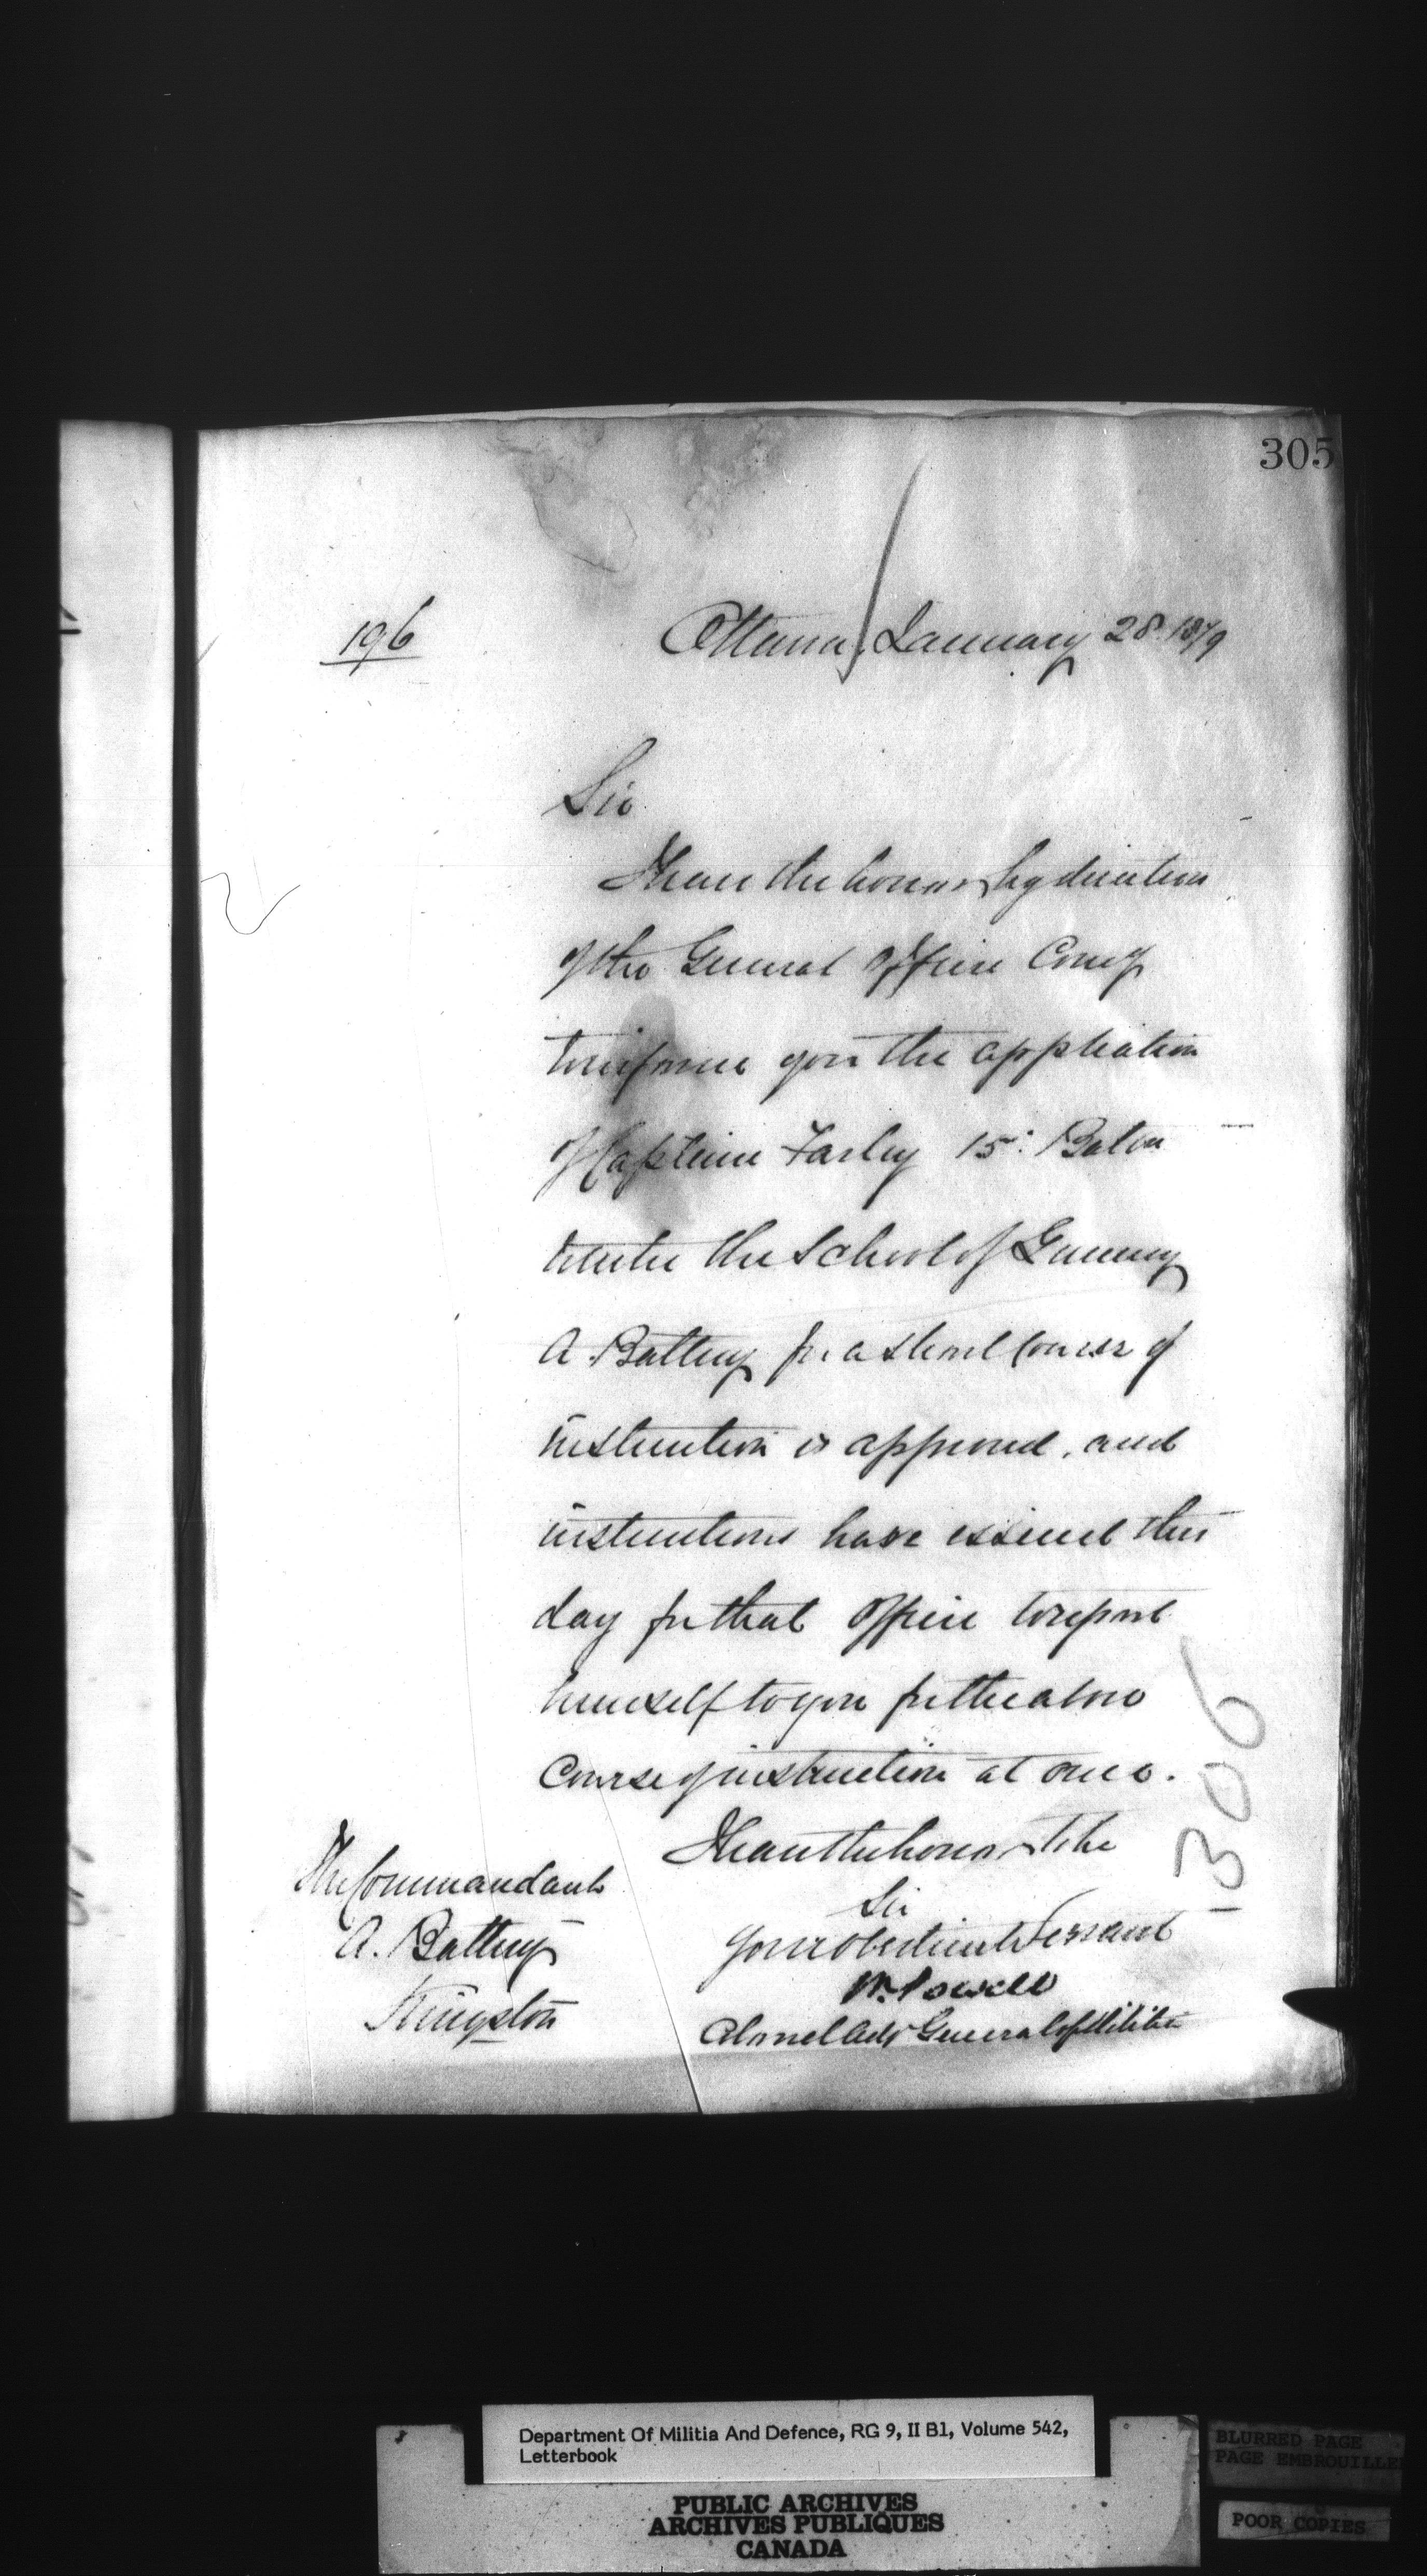 305
196
Ottawa, January 28. 1879
Sir
I have the honor by direction
of the General Officer Comg
to inform you the application
of Captain Farley 15: Batln
to enter the School of Gunnery
A. Battery for a short course of
instruction is approved, and
instructions have issued this
day for that officer to report
himself to you for the above
Course of instruction at once.
I have the honor to be
Sir
Your obedient Servant
W. Powell
Colonel Adjt General of Militia
The Commandant
A. Battery
Kingston
306
Department Of Militia And Defence, RG 9, II B1, Volume 542,
Letterbook
PUBLIC ARCHIVES
ARCHIVES PUBLIQUES
CANADA
BLURRED PAGE
PAGE EMBROUILLEE
POOR COPIES